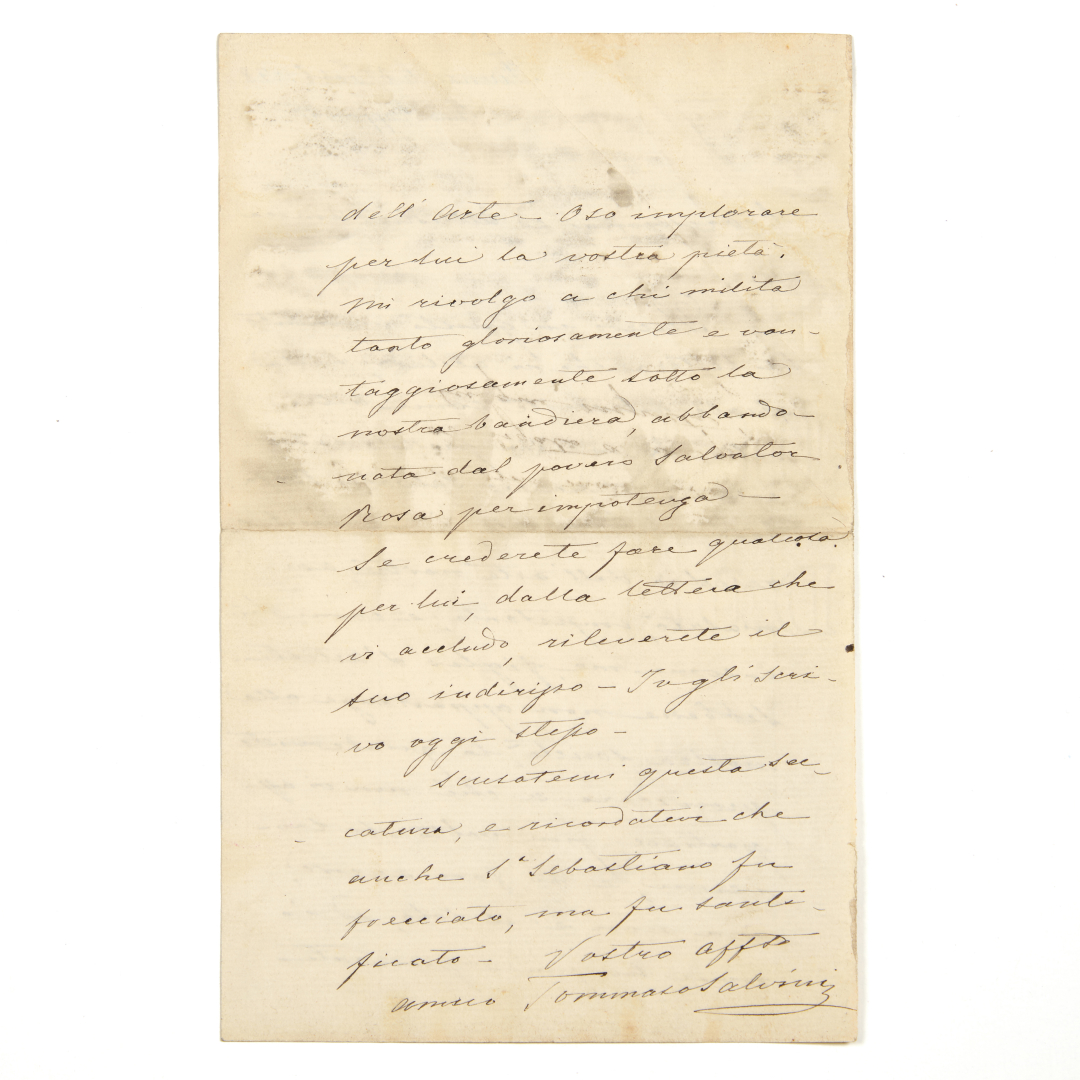 dell' Arte — Oso implorare
per lui la vostra pietà.
Mi rivolgo a chi milita
tanto gloriosamente e van-
taggiosamente sotto la
nostra bandiera, abbando-
nata dal povero Salvator
Rosa per impotenza —
Se crederete fare qualcosa
per lui, dalla lettera che
vi accludo, rileverete il
suo indirizzo — Io gli scri-
vo oggi stesso —
Scusatemi questa sec-
catura, e ricordatevi che
anche Sn Sebastiano fu
frecciato, ma fu santi-
ficato — Vostro affmo
amico Tommaso Salvini